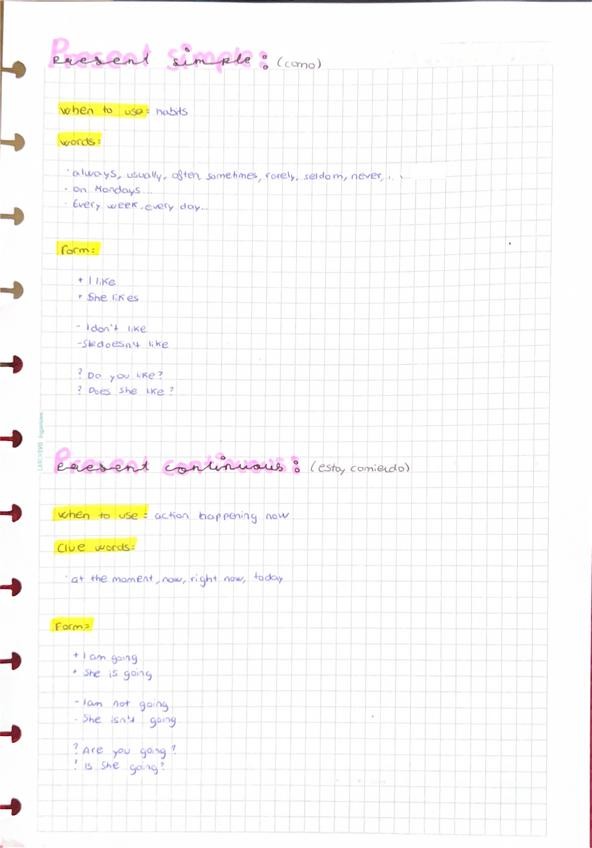 Present simple: (como)
when to use: habits
words:
· always, usually, often, sometimes, rarely, seldom, never, ...
· on Mondays...
· Every week, every day...
Form:
+ I like
+ She likes
- I don't like
- She doesn't like
? Do you like?
? Does she like?
Present continuous: (estoy comiendo)
when to use: action happening now
Clue words:
· at the moment, now, right now, today
Form:
+ I am going
+ She is going
- I am not going
- She isn't going
? Are you going?
? Is she going?